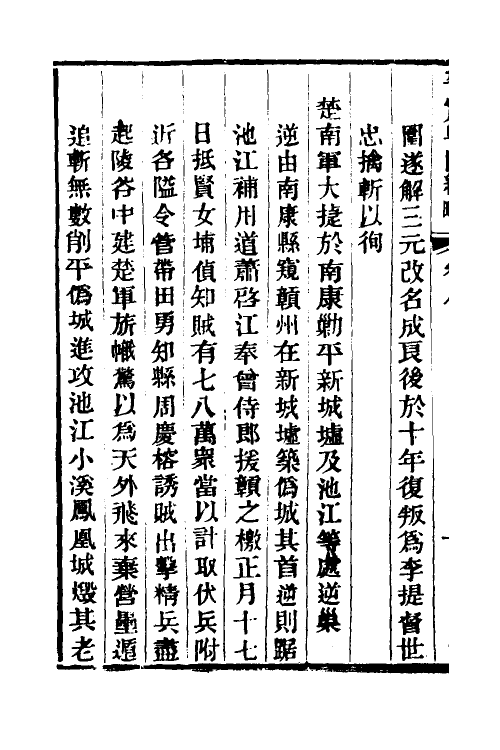 圍遂解三元改名成良後於十年復叛爲李提督世
忠擒斬以徇
楚南軍大捷於南康勦平新城墟及池江等處逆巢
逆由南康縣窺贛州在新城墟築僞城其首逆則踞
池江補用道蕭啓江奉曾侍郎援贛之檄正月十七
日抵賢女埔偵知賊有七八萬衆當以計取伏兵附
近各隘令管帶田勇知縣周慶榕誘賊出擊精兵盡
起陵谷中建楚軍旂幟驚以爲天外飛來棄營壘遁
追斬無數削平僞城進攻池江小溪鳳凰城燬其老